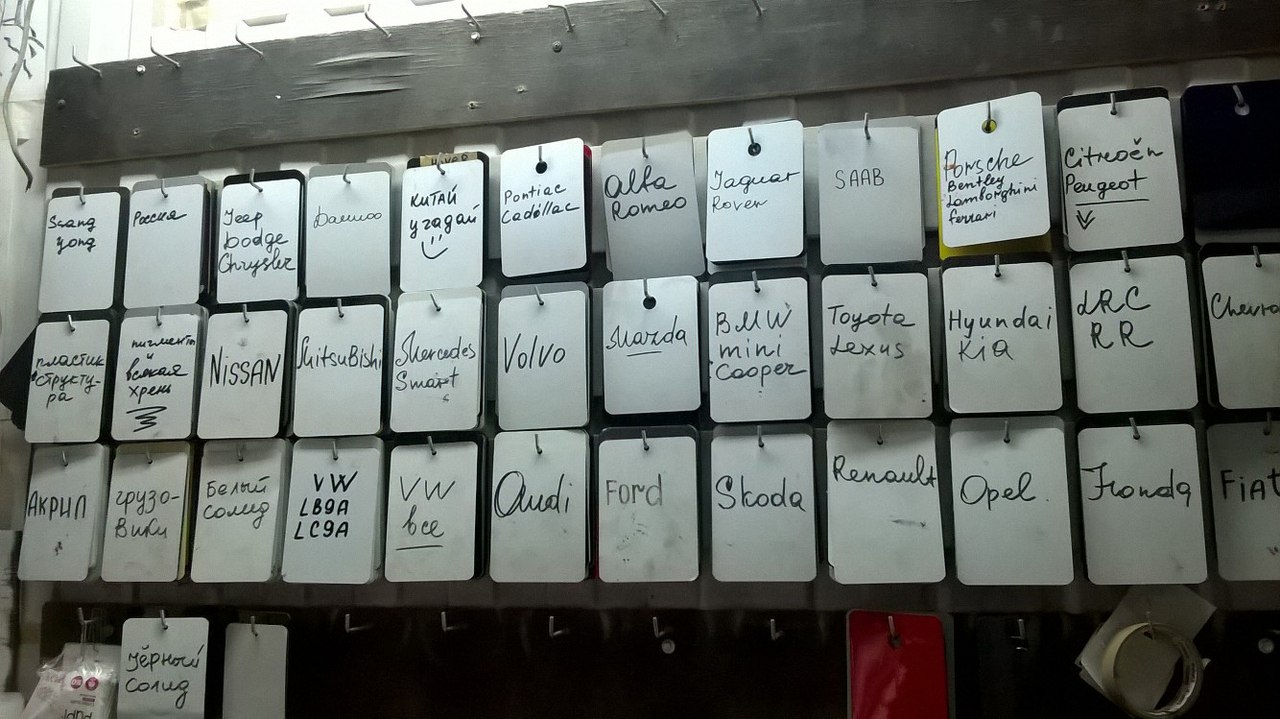 Ssang
yong
Россия
Jeep
Dodge
Chrysler
Daewoo
КИТАЙ
угадай
Pontiac
Cadillac
Alfa
Romeo
Jaguar
Rover
SAAB
Porsche
Bentley
Lamborghini
ferrari
Citroën
Peugeot
пластик
структу-
ра
пигменты
и
всякая
хрень
NISSAN
MitsuBishi
Mercedes
Smart
Volvo
Mazda
BMW
mini
Cooper
Toyota
Lexus
Hyundai
Kia
LRC
RR
Chevro
АКРИЛ
грузо-
вики
Белый
солид
VW
LB9A
LC9A
VW
все
Audi
Ford
Skoda
Renault
Opel.
Honda
FiAt
Чёрный
солид